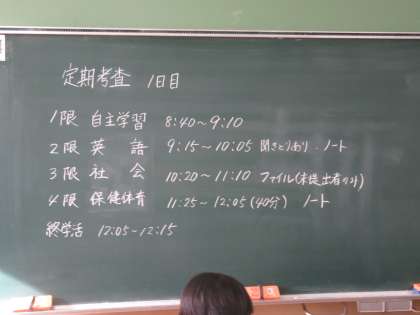 定期考査 1日目
1限 自主学習 8:40~9:10
2限 英語 9:15~10:05 聞きとりあり・ノート
3限 社会 10:20~11:10 ファイル(未提出者のみ)
4限 保健体育 11:25~12:05(40分) ノート
終学活 12:05~12:15